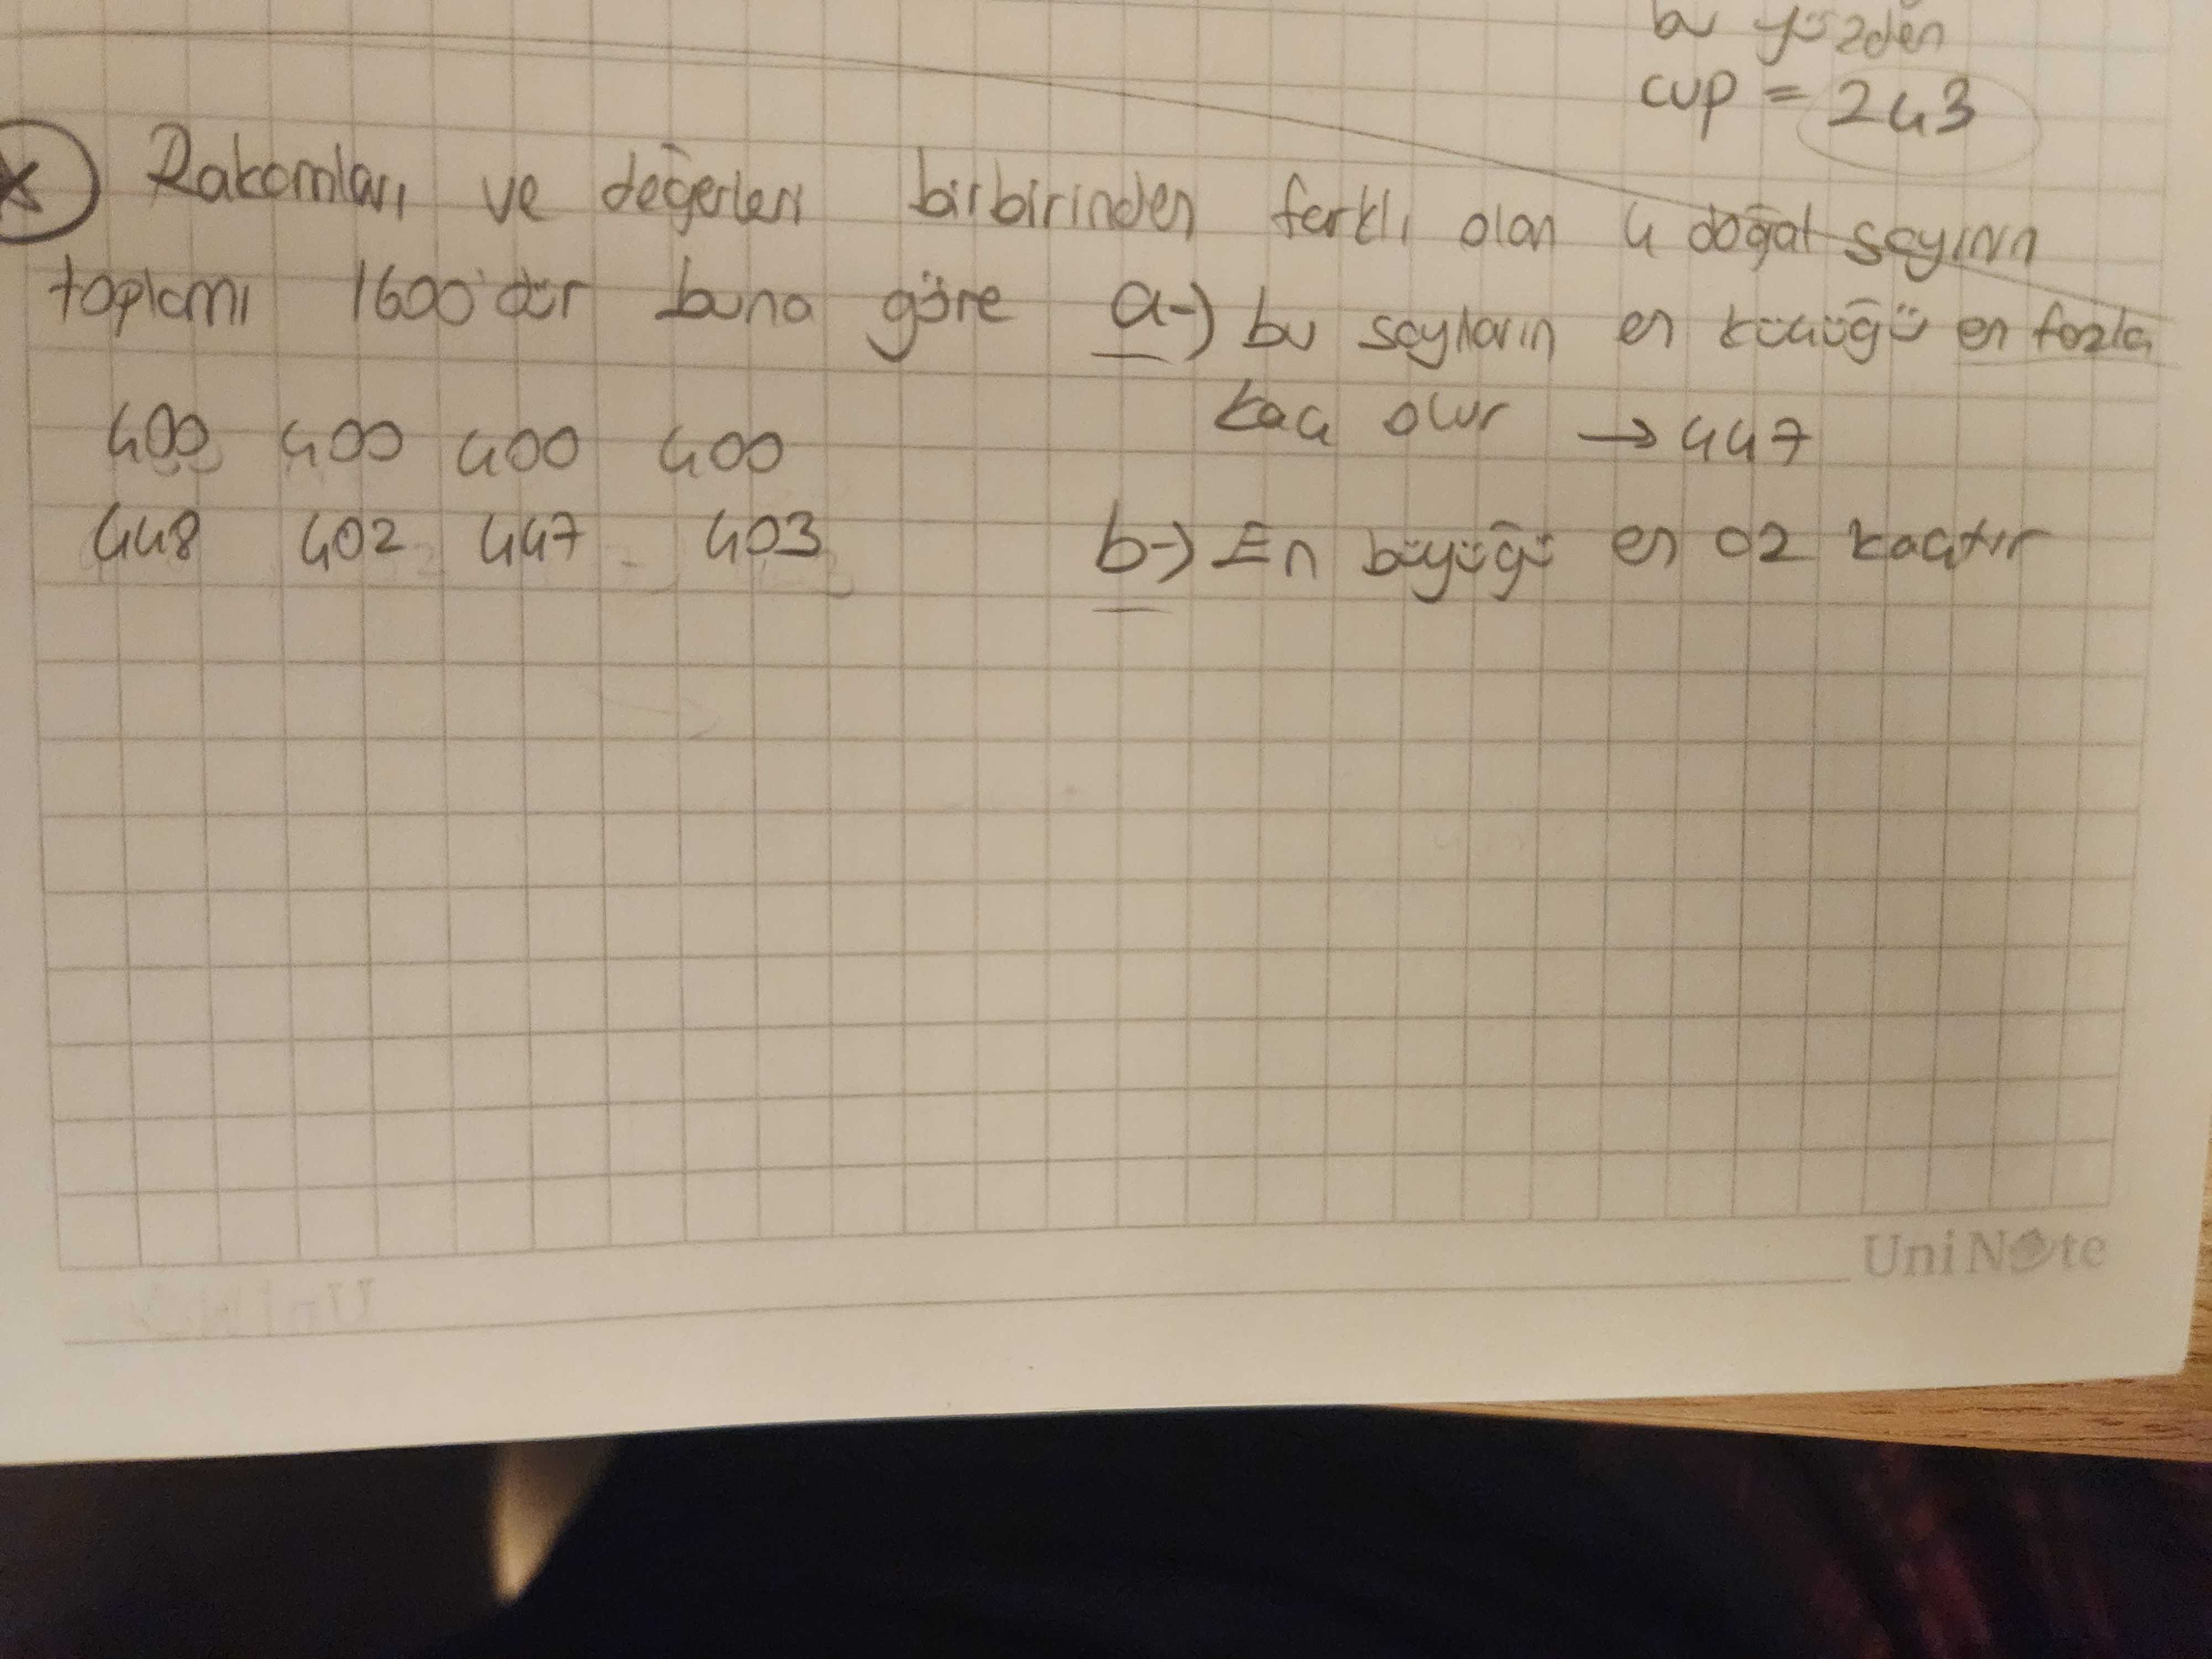 bu yüzden
cvp = 243
Rakamları ve değerleri birbirinden farklı olan 4 doğal sayının
toplamı 1600'dür buna göre a-) bu sayıların en küçüğü en fazla
kaç olur → 447
400 400 400 400
448 402 447 403
b-) En büyüğü en az kaçtır
UniNote